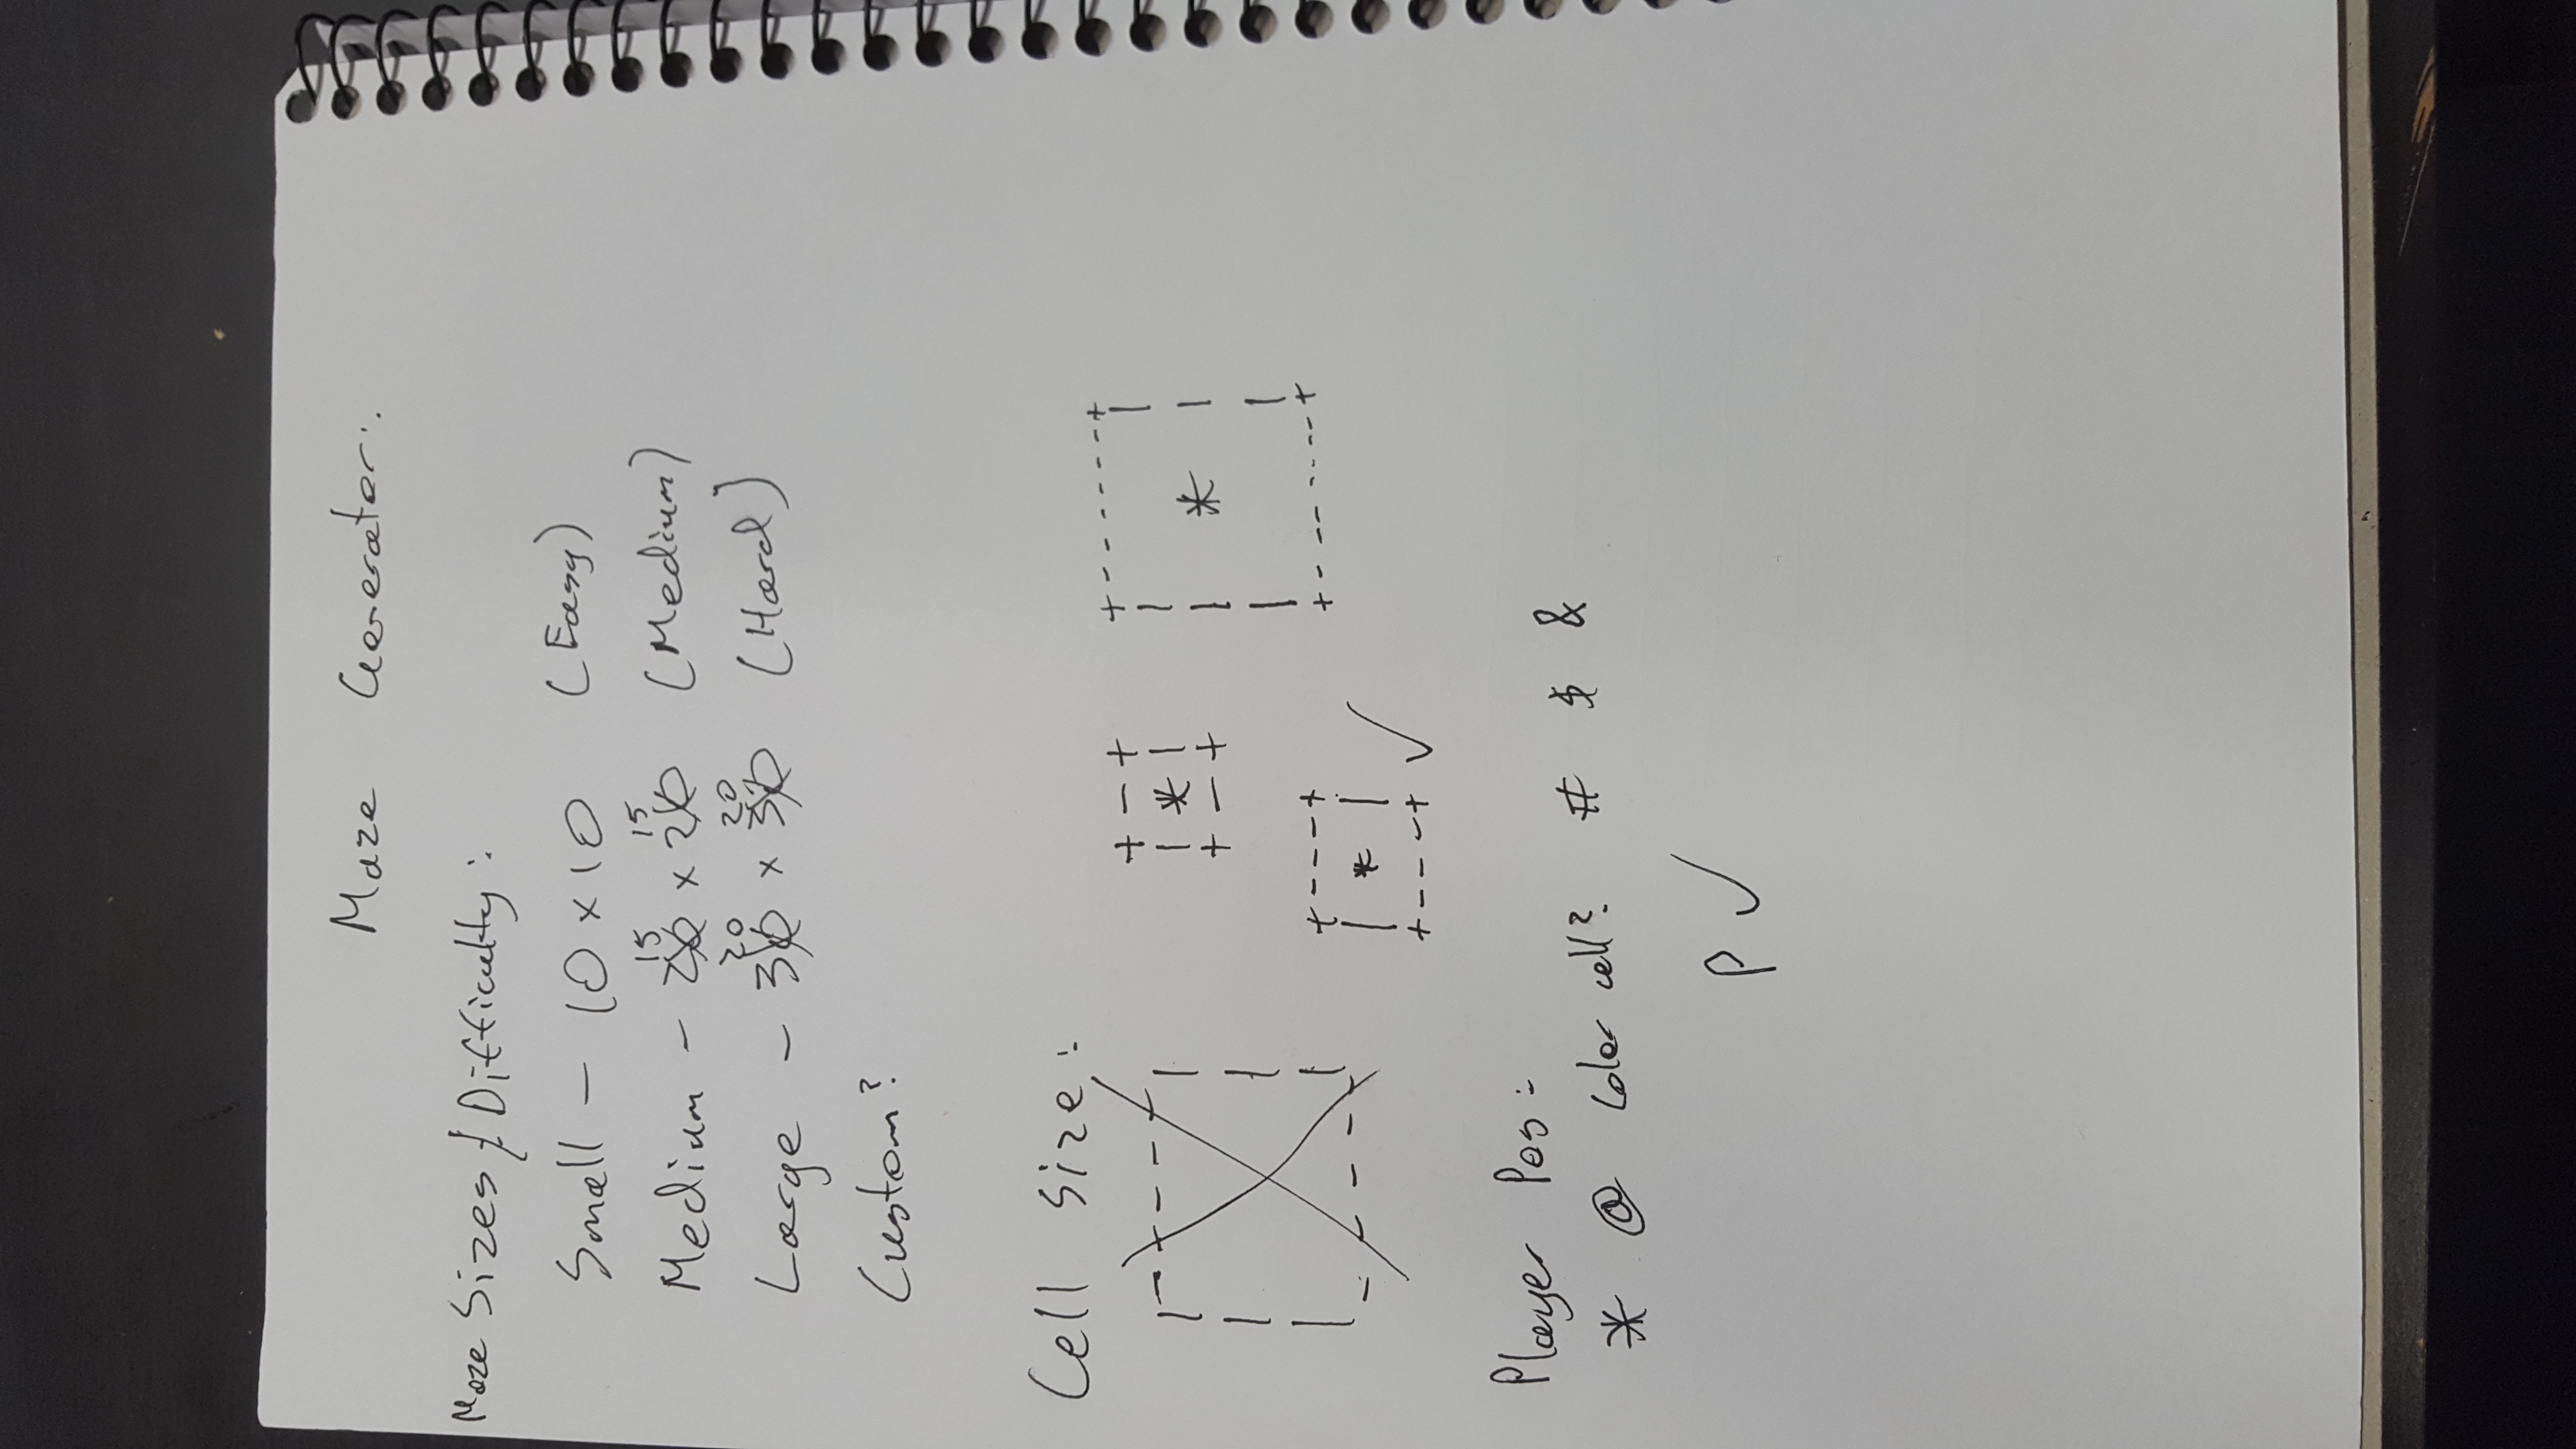 Maze Generator:
Maze Sizes / Difficulty:
Small - 10 x 10 (Easy)
15 15
Medium - 20 x 20 (Medium)
20 20
Large - 30 x 30 (Hard)
Custom?
Cell Size:
+ - + +-------+
| * | *
+ - +
+---+
| * |
+---+ ✓ +-------+
Player Pos:
* @ Color cell? # $ &
P ✓